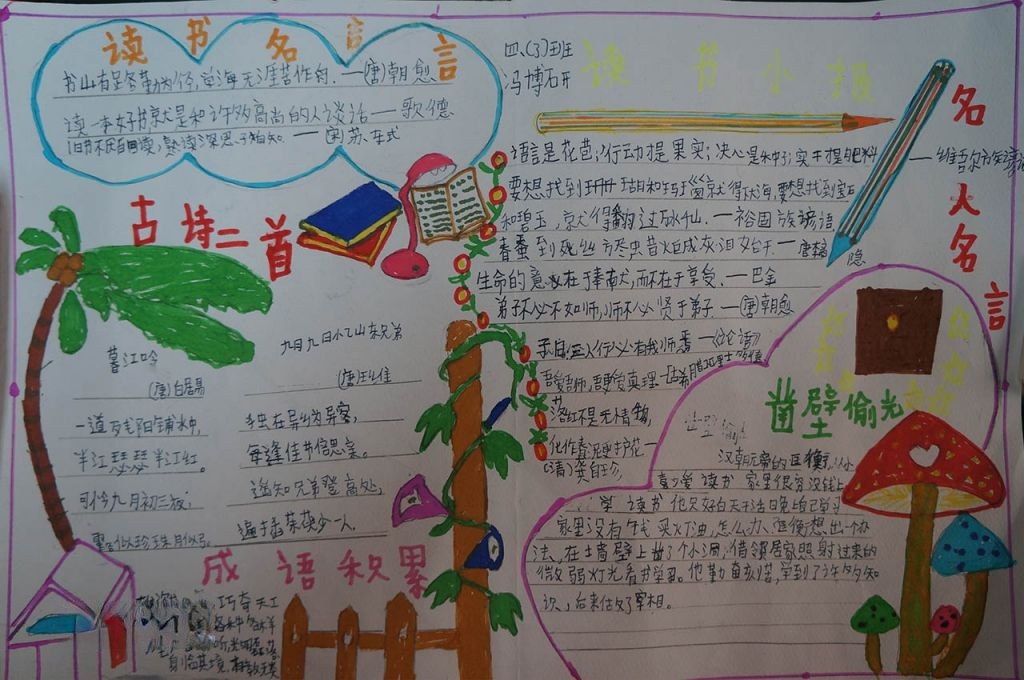 读书名言
书山有路勤为径,学海无涯苦作舟。—(唐)朝愈
读一本好书就是和许多高尚的人谈话—歌德
旧书不厌百回读,熟读深思子自知。—(宋)苏东式
四、(3)班
冯博研
读书小报
名人名言
语言是花苞;行动提果实;决心是种子;实干提肥料—维吾尔族谚语
要想找到珊瑚和珍珠就得下大海,要想找到宝石
和碧玉,就得翻过冰山。—裕固族谚语
春蚕到死丝方尽虫昔火巨成灰泪始干—唐李商隐
生命的意义在于奉献,而不在于享受。—巴金
弟子不必不如师,师不必贤于弟子—(唐)朝愈
子曰:三人行必有我师焉—《论语》
吾爱吾师,吾更爱真理—古希腊亚里士多德
落红不是无情物,
化作春泥更护花—
(清)龚自珍
古诗二首
暮江吟
(唐)白居易
一道歹戋阳铺水中,
半江瑟瑟半江红。
可怜九月初三夜,
露似珍珠月似弓。
九月九日忆山东兄弟
(唐)王维
独在异乡为异客,
每逢佳节倍思亲。
遥知兄弟登高处,
遍插茱萸少一人。
成语积累
巧夺天工
各种各样
身临其境,
凿壁偷光
汉朝元帝的匡衡,从小
喜欢读书 家里很穷没钱上
学 读书 他只好白天干活晚上自己学习
家里没有钱买火丁油,怎么办,匡衡想出一个办
法,在土墙壁上凿了个小洞,借邻居家照射过来的
微弱灯光看书学习。他勤奋刻苦,学到了许多知
识,后来任做了宰相。